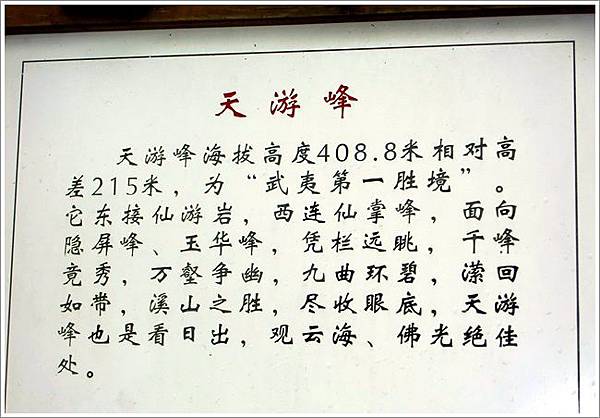 天游峰
天游峰海拔高度408.8米相对高
差215米，为“武夷第一胜境”。
它东接仙游岩，西连仙掌峰，面向
隐屏峰、玉华峰，凭栏远眺，千峰
竞秀，万壑争幽，九曲环碧，潆回
如带，溪山之胜，尽收眼底，天游
峰也是看日出，观云海、佛光绝佳
处。